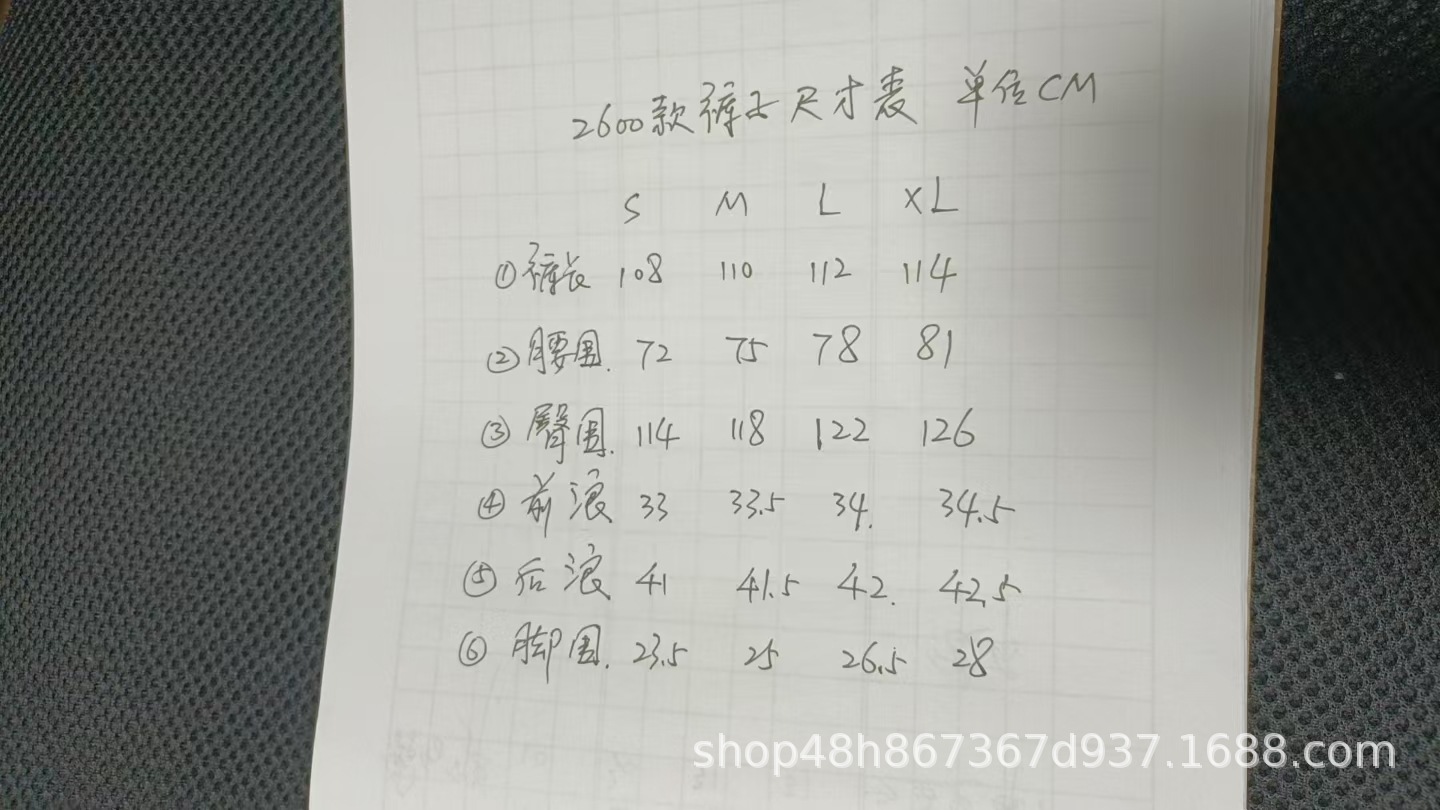 2600款裤子尺寸表 单位CM
S M L XL
①裤长 108 110 112 114
②腰围. 72 75 78 81
③臀围. 114 118 122 126
④前浪 33 33.5 34. 34.5
⑤后浪 41 41.5 42. 42.5
⑥脚围. 23.5 25 26.5 28
shop48h867367d937.1688.com